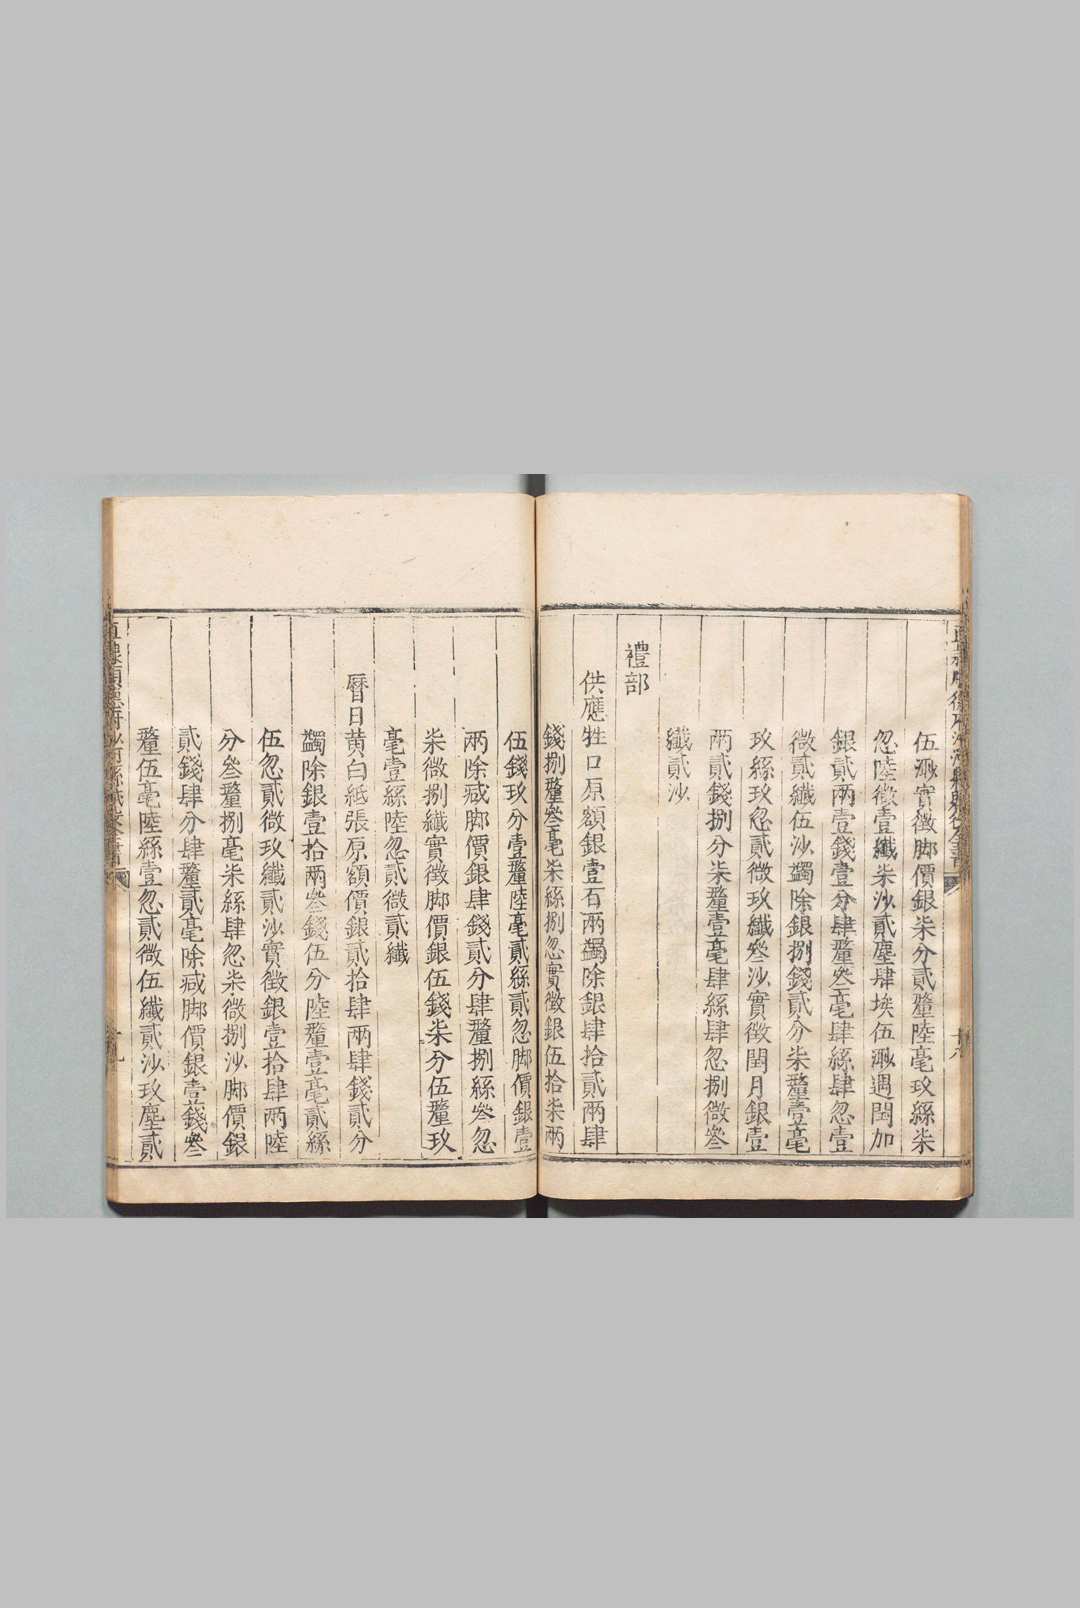 伍渺實徵脚價銀柒分貳釐陸毫玖絲柒
忽陸微壹纖柒沙貳塵肆埃伍渺遇閏加
銀貳兩壹錢壹分肆釐叄毫肆絲肆忽壹
微貳纖伍沙蠲除銀捌錢貳分柒釐壹毫
玖絲玖忽貳微玖纖叄沙實徵閏月銀壹
兩貳錢捌分柒釐壹毫肆絲肆忽捌微叄
纖貳沙
禮部
供應牲口原額銀壹百兩蠲除銀肆拾貳兩肆
錢捌釐叄毫柒絲捌忽實徵銀伍拾柒兩
伍錢玖分壹釐陸毫貳絲貳忽脚價銀壹
兩除減脚價銀肆錢貳分肆釐捌絲叄忽
柒微捌纖實徵脚價銀伍錢柒分伍釐玖
毫壹絲陸忽貳微貳纖
曆日黃白紙張原額價銀貳拾肆兩肆錢貳分
蠲除銀壹拾兩叄錢伍分陸釐壹毫貳絲
伍忽貳微玖纖貳沙實徵銀壹拾肆兩陸
分叄釐捌毫柒絲肆忽柒微捌沙脚價銀
貳錢肆分肆釐貳毫除減脚價銀壹錢叄
釐伍毫陸絲壹忽貳微伍纖貳沙玖塵貳